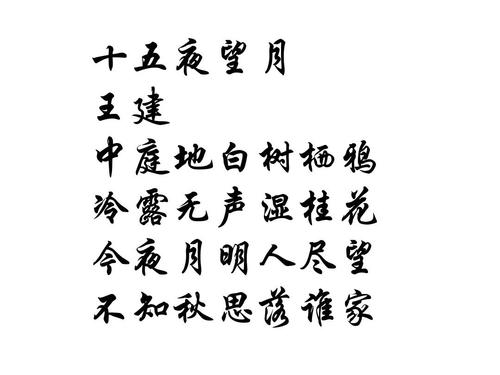 十五夜望月
王建
中庭地白树栖鸦
冷露无声湿桂花
今夜月明人尽望
不知秋思落谁家